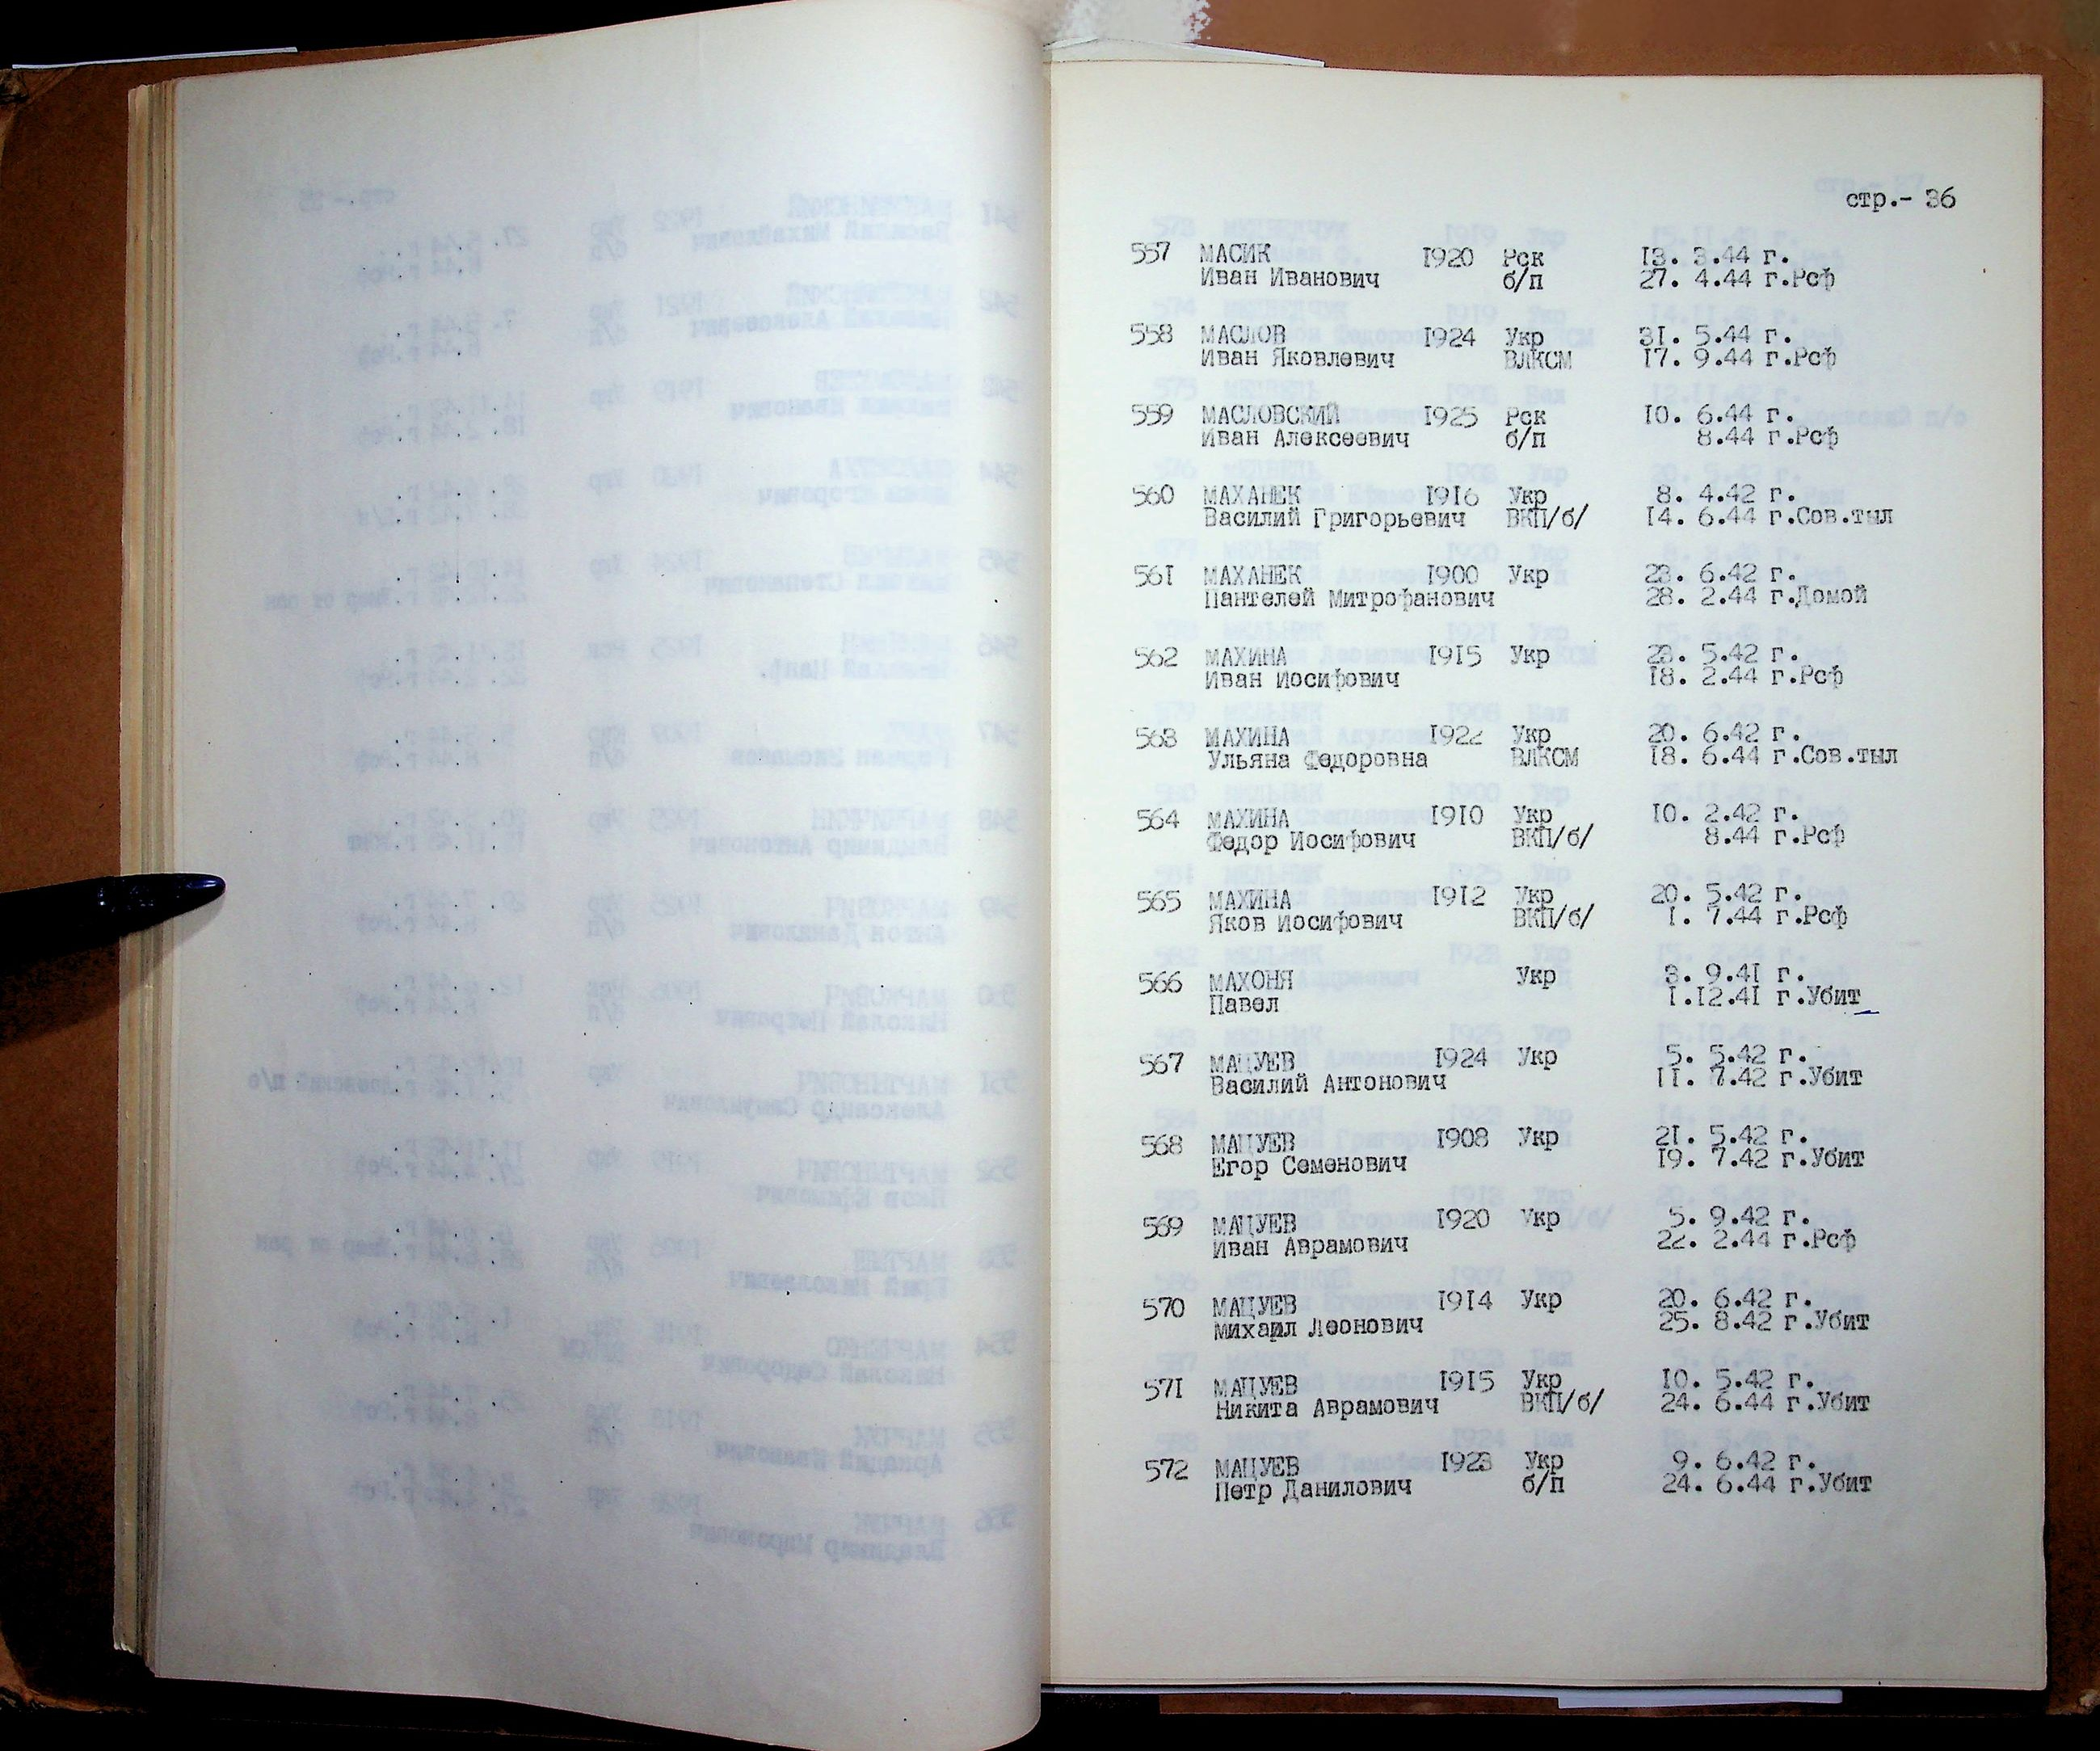 стр.- 36
557 МАСИК 1920 Рск 13. 3.44 г.
Иван Иванович б/п 27. 4.44 г.Рсф
558 МАСЛОВ 1924 Укр 31. 5.44 г.
Иван Яковлевич ВЛКСМ 17. 9.44 г.Рсф
559 МАСЛОВСКИЙ 1925 Рск 10. 6.44 г.
Иван Алексеевич б/п 8.44 г.Рсф
560 МАХАНЕК 1916 Укр 8. 4.42 г.
Василий Григорьевич ВКП/б/ 14. 6.44 г.Сов.тыл
561 МАХАНЕК 1900 Укр 23. 6.42 г.
Пантелей Митрофанович 28. 2.44 г.Домой
562 МАХИНА 1915 Укр 23. 5.42 г.
Иван Иосифович 18. 2.44 г.Рсф
563 МАХИНА 1922 Укр 20. 6.42 г.
Ульяна Федоровна ВЛКСМ 18. 6.44 г.Сов.тыл
564 МАХИНА 1910 Укр 10. 2.42 г.
Федор Иосифович ВКП/б/ 8.44 г.Рсф
565 МАХИНА 1912 Укр 20. 5.42 г.
Яков Иосифович ВКП/б/ 1. 7.44 г.Рсф
566 МАХОНЯ Укр 3. 9.41 г.
Павел 1.12.41 г.Убит
567 МАЦУЕВ 1924 Укр 5. 5.42 г.
Василий Антонович 11. 7.42 г.Убит
568 МАЦУЕВ 1908 Укр 21. 5.42 г.
Егор Семенович 19. 7.42 г.Убит
569 МАЦУЕВ 1920 Укр 5. 9.42 г.
Иван Аврамович 22. 2.44 г.Рсф
570 МАЦУЕВ 1914 Укр 20. 6.42 г.
Михаил Леонович 25. 8.42 г.Убит
571 МАЦУЕВ 1915 Укр 10. 5.42 г.
Никита Аврамович ВКП/б/ 24. 6.44 г.Убит
572 МАЦУЕВ 1923 Укр 9. 6.42 г.
Петр Данилович б/п 24. 6.44 г.Убит